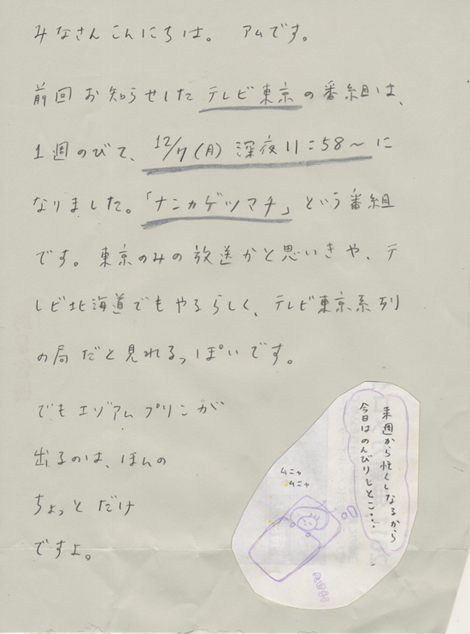 みなさんこんにちは。 アムです。
前回お知らせしたテレビ東京の番組は、
1週のびて、12/7(月)深夜11:58〜に
なりました。「ナンカゲツマチ」という番組
です。東京のみの放送かと思いきや、テ
レビ北海道でもやるらしく、テレビ東京系列
の局だと見れるっぽいです。
でもエゾアムプリンが
出るのは、ほんの
ちょっとだけ
ですよ。
来週から忙しくなるから
今日はのんびりしとこ...
ムニャ
ムニャ